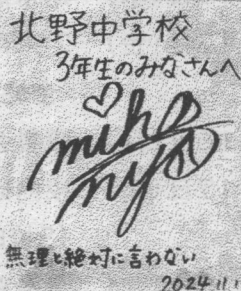 北野中学校
3年生のみなさんへ
miho
nya
無理と絶対に言わない
2024.11.1